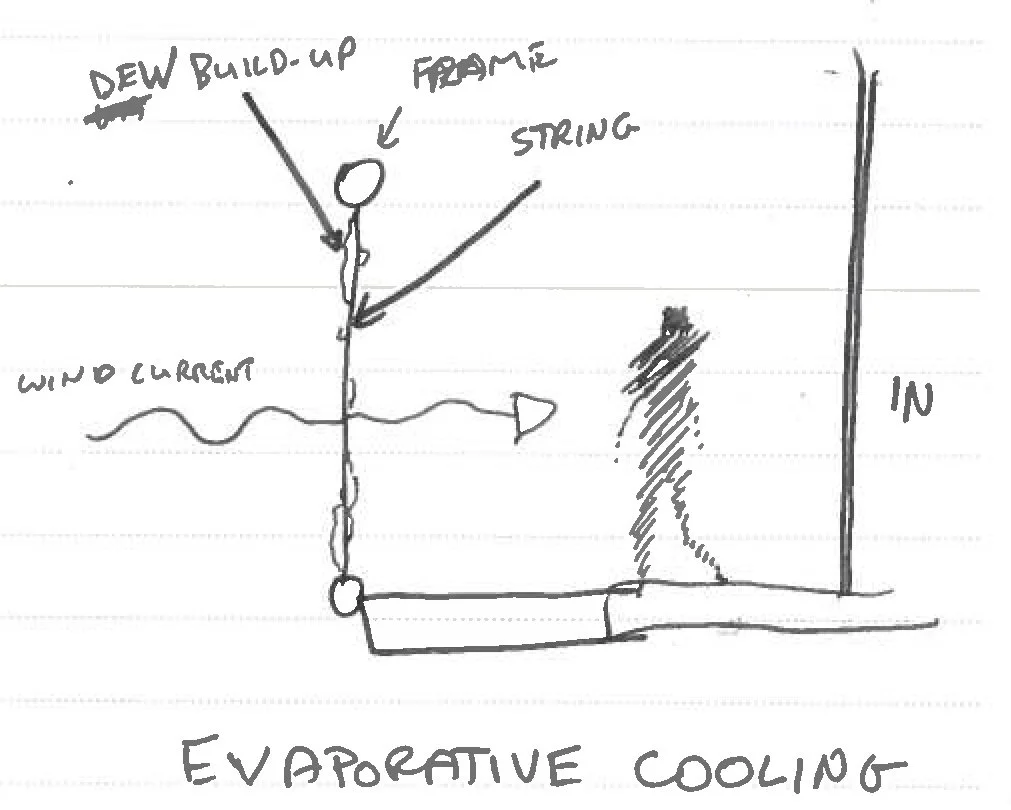 DEW BUILD-UP
FRAME
STRING
WIND CURRENT
IN
EVAPORATIVE COOLING